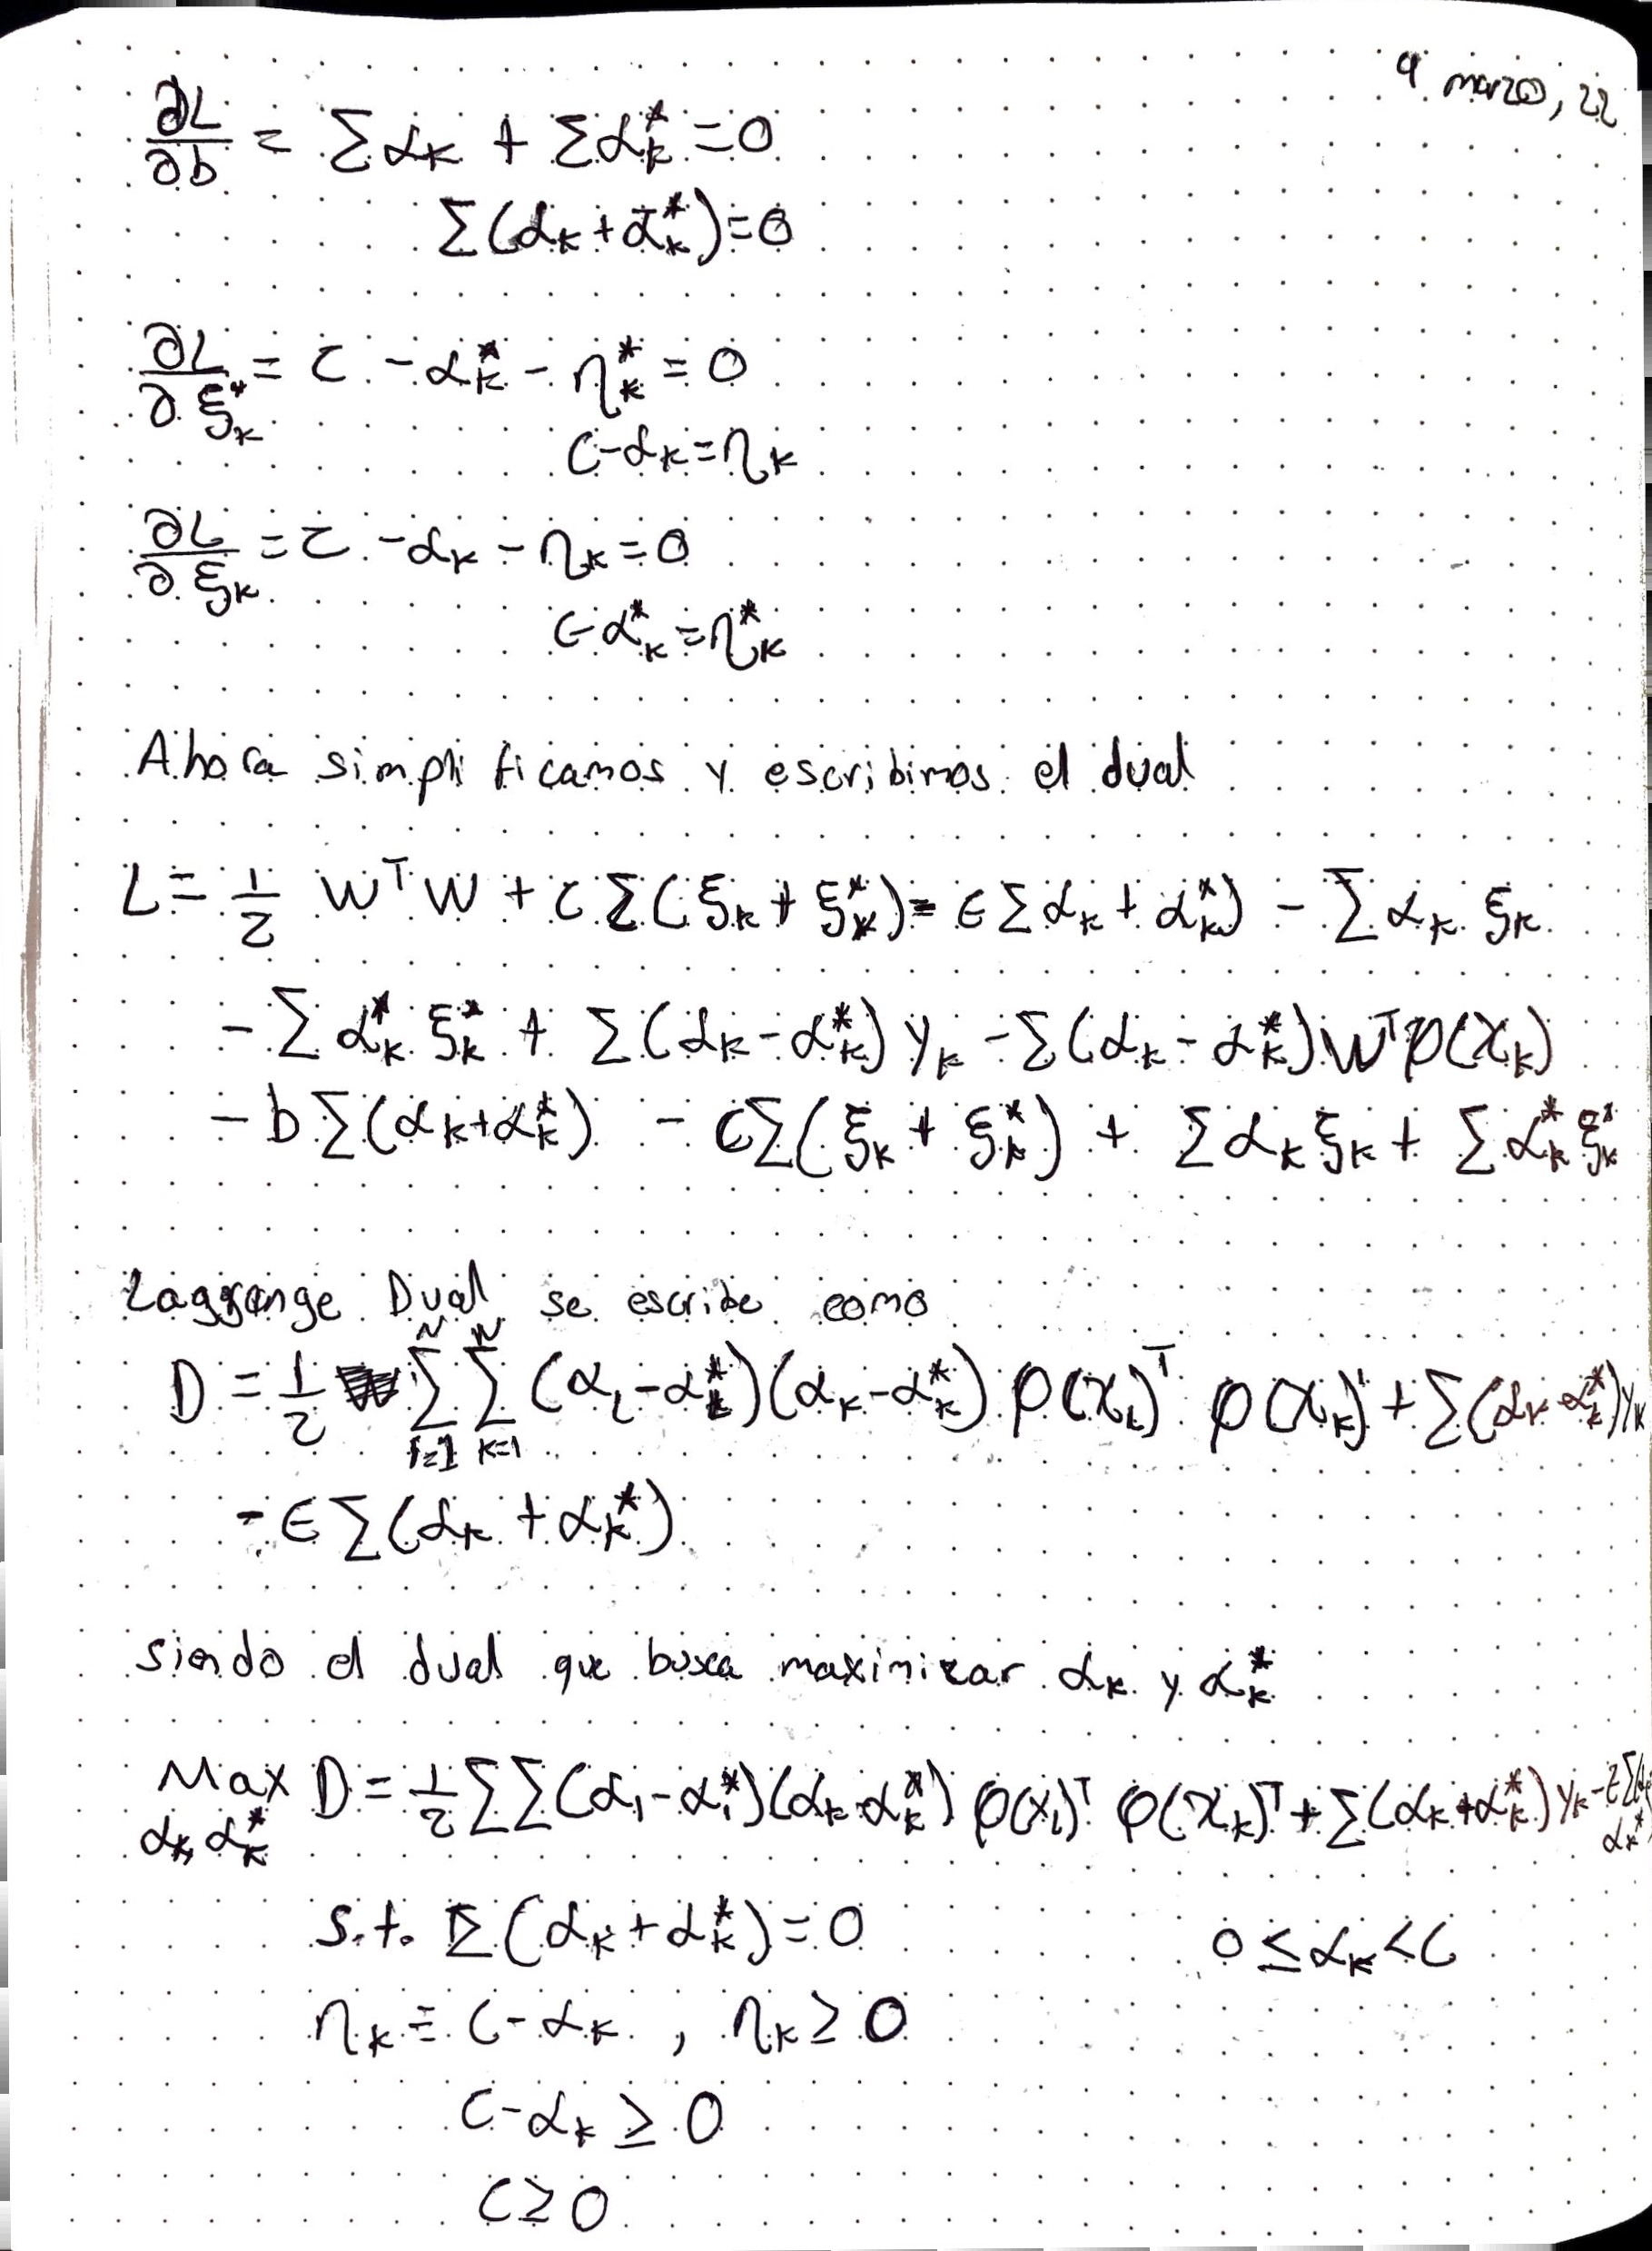 9 marzo, 22
∂L/∂b = Σ αₖ + Σ αₖ* = 0
Σ(αₖ + αₖ*) = 0
∂L/∂ξₖ* = C - αₖ* - ηₖ* = 0
C - αₖ = ηₖ
∂L/∂ξₖ = C - αₖ - ηₖ = 0
C - αₖ* = ηₖ*
Ahora simplificamos y escribimos el dual
L = 1/2 WᵀW + C Σ(ξₖ + ξₖ*) - ε Σ αₖ + αₖ*) - Σ αₖ ξₖ
- Σ αₖ* ξₖ* + Σ(αₖ - αₖ*) yₖ - Σ(αₖ - αₖ*) Wᵀφ(xₖ)
- b Σ(αₖ + αₖ*) - C Σ(ξₖ + ξₖ*) + Σ αₖ ξₖ + Σ αₖ* ξₖ*
Laggrange Dual se escribe como
N N
D = 1/2 Σ Σ (αᵢ - αᵢ*)(αₖ - αₖ*) φ(xᵢ)ᵀ φ(xₖ) + Σ(αₖ - αₖ*) yₖ
i=1 k=1
- ε Σ(αₖ + αₖ*)
siendo el dual que busca maximizar αₖ y αₖ*
Max D = 1/2 Σ Σ (αᵢ - αᵢ*)(αₖ - αₖ*) φ(xᵢ)ᵀ φ(xₖ)ᵀ + Σ(αₖ + αₖ*) yₖ - ε Σ
αₖ, αₖ* αₖ*
s.t. Σ(αₖ + αₖ*) = 0 0 ≤ αₖ < C
ηₖ = C - αₖ , ηₖ ≥ 0
C - αₖ ≥ 0
C ≥ 0